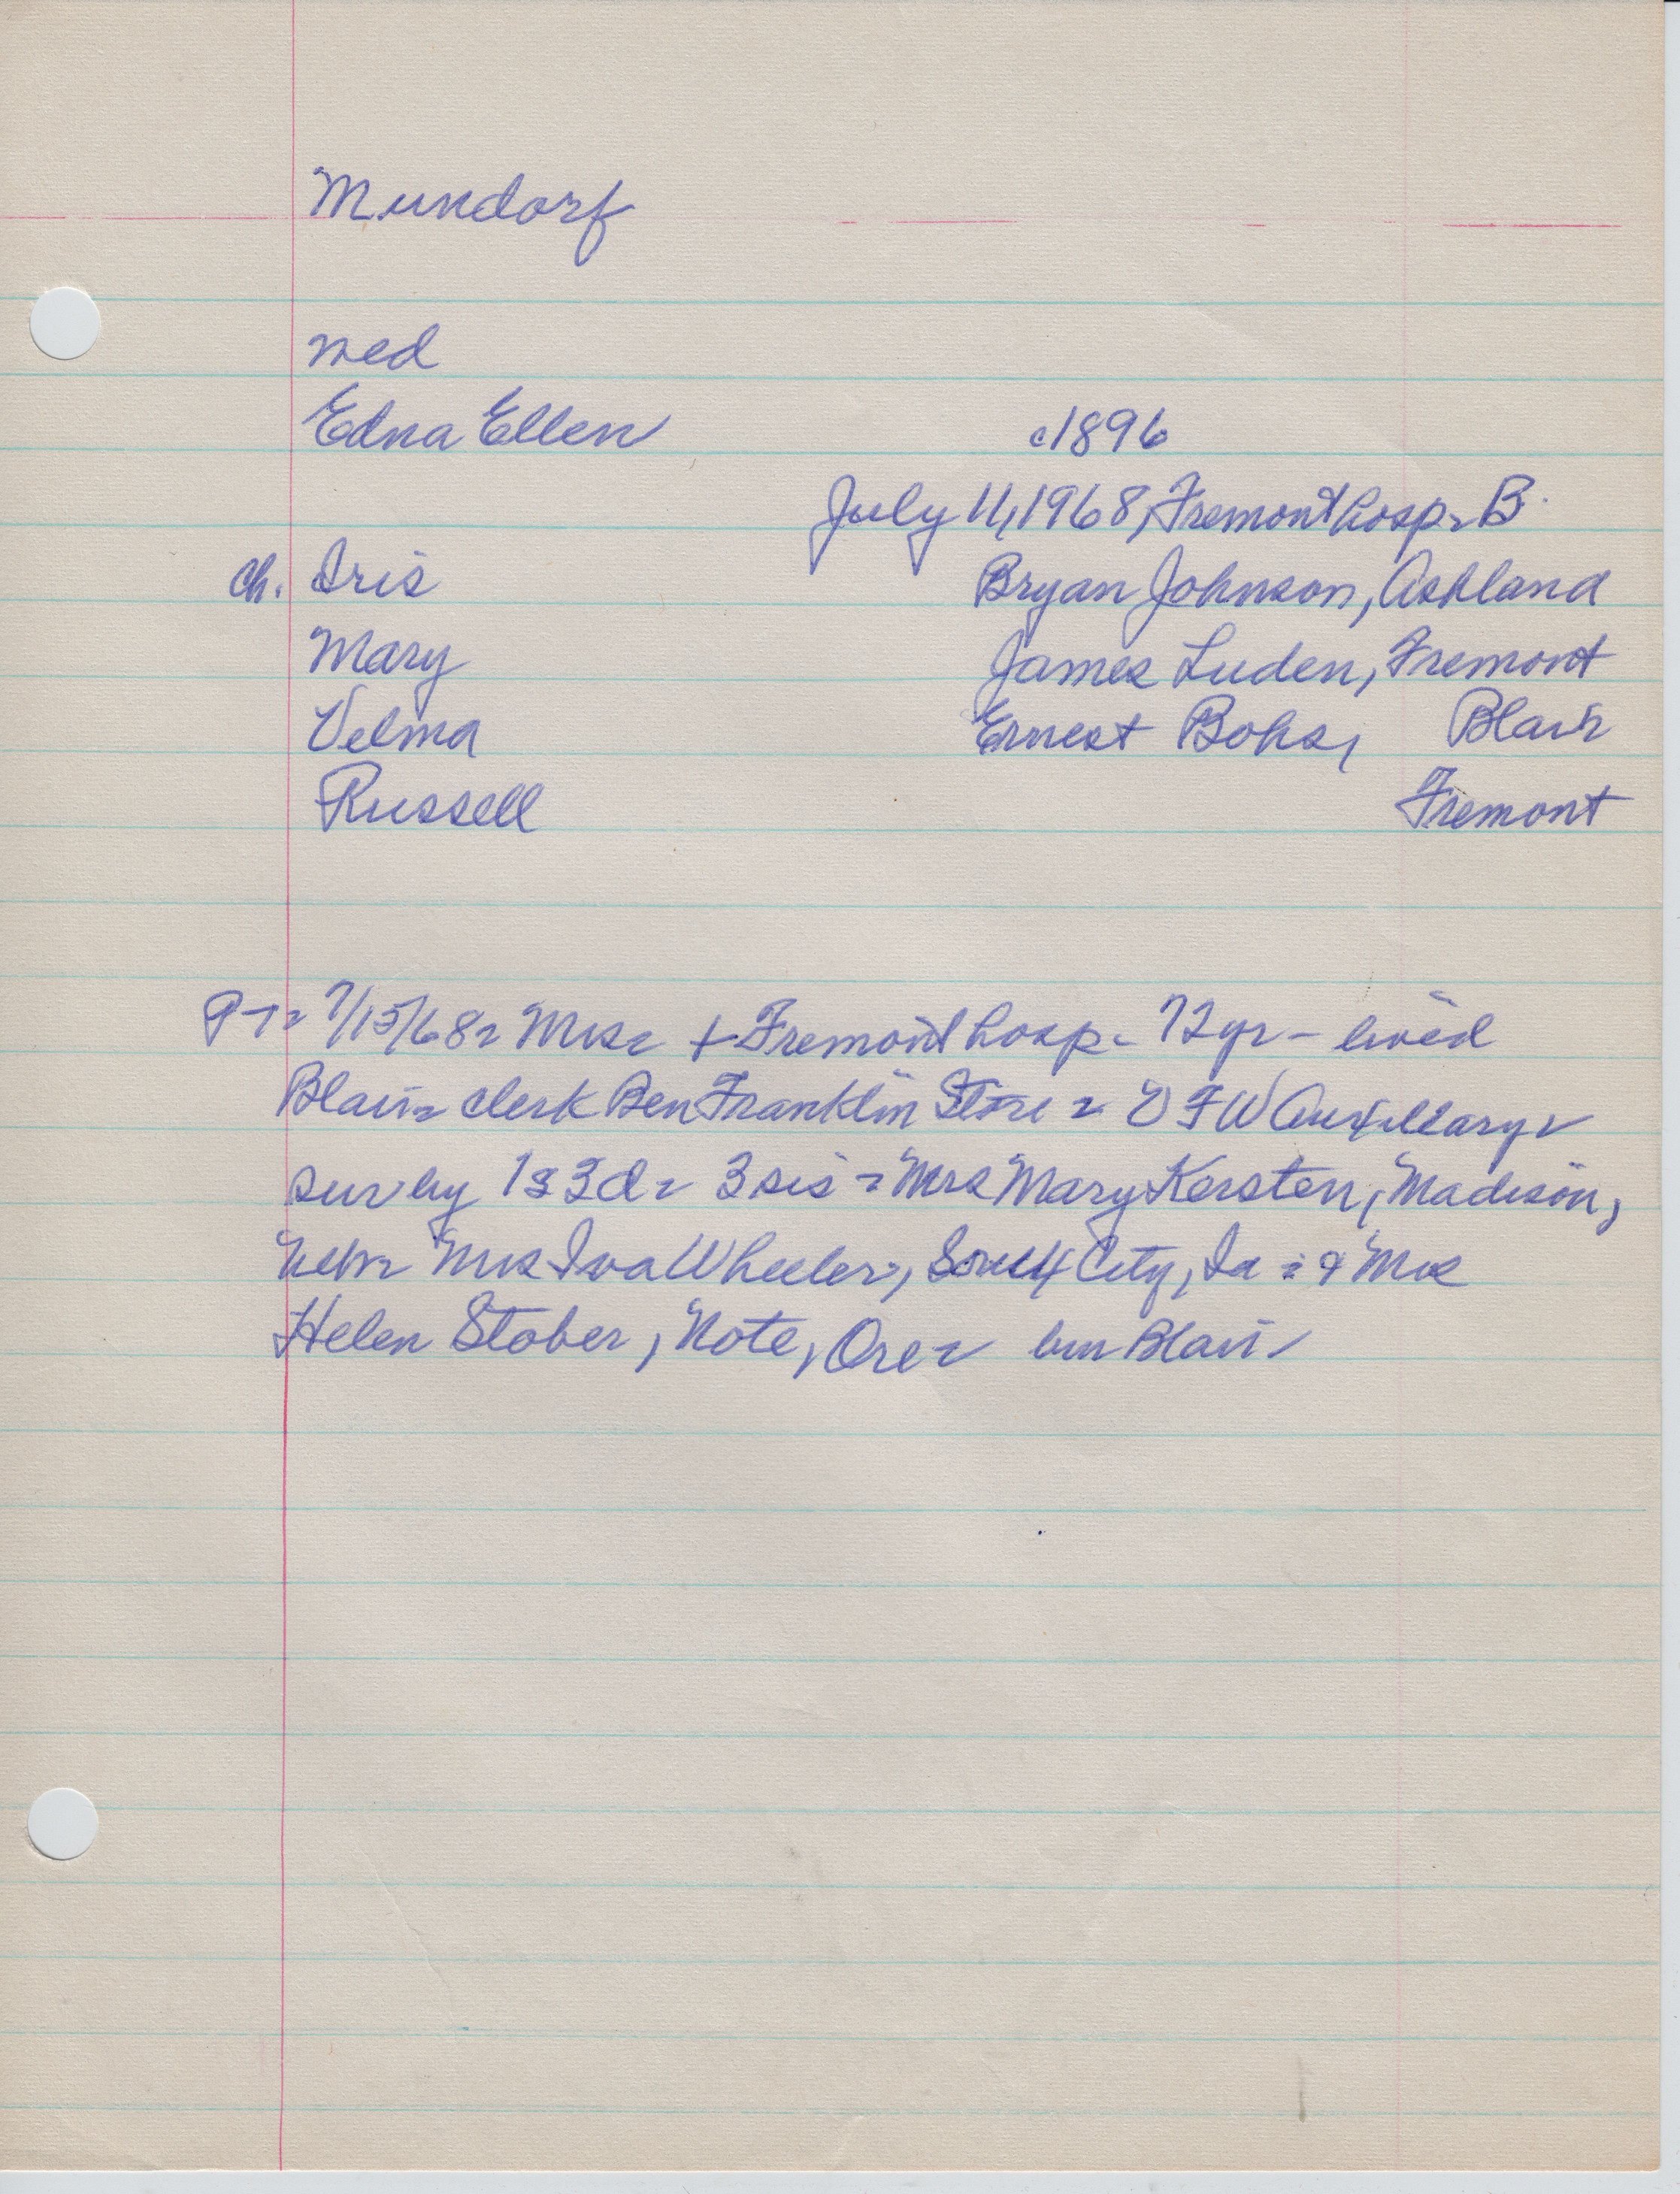 Mundorf
Ned
Edna Ellen c1896
July 11, 1968, Fremont hosp - B
ch. Iris Bryan Johnson, Ashland
Mary James Luden, Fremont
Velma Ernest Bohs, Blair
Russell Fremont
PT - 7/15/68 - Mrs - + Fremont hosp - 72 yr - lived
Blair - clerk Ben Franklin Store - VFW Auxillary -
surv by 1s 3d - 3 sis - Mrs Mary Kersten, Madison,
Nebr Mrs Iva Wheeler, City, Ia - & Mrs
Helen Stober, Note, Ore - bur Blair -